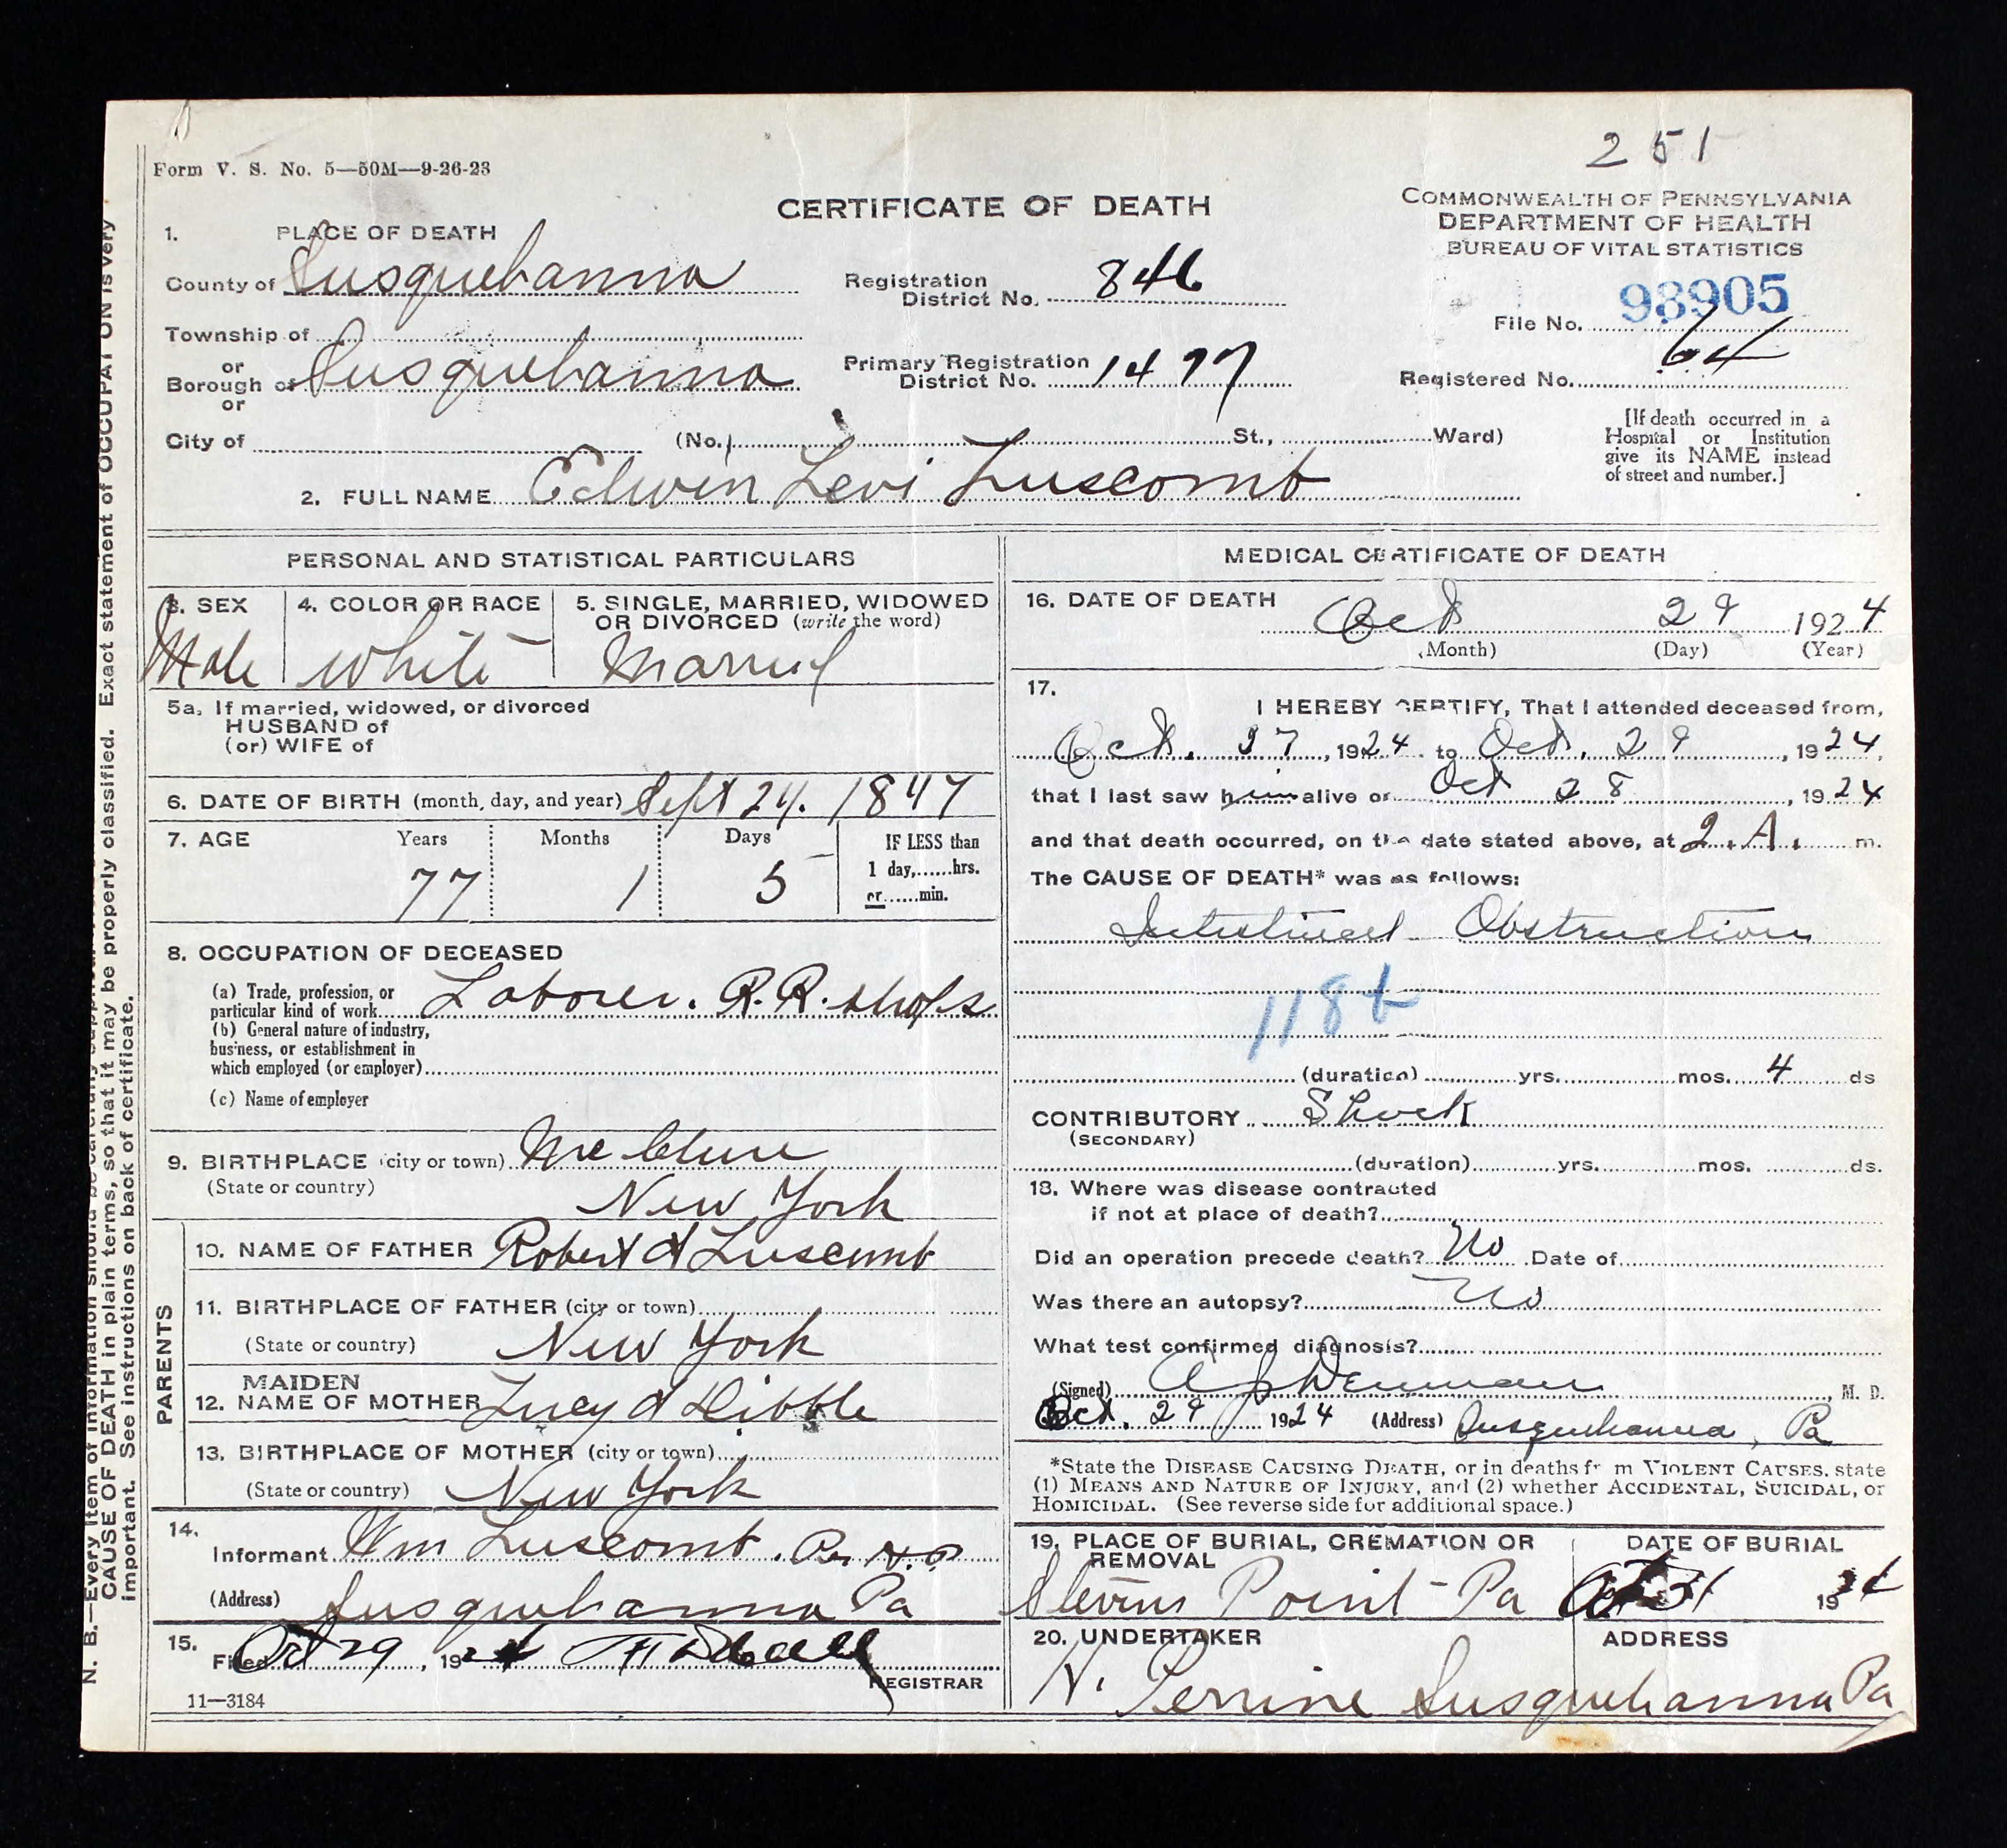 251
Form V. S. No. 5—50M—9-26-23
CERTIFICATE OF DEATH
COMMONWEALTH OF PENNSYLVANIA
DEPARTMENT OF HEALTH
BUREAU OF VITAL STATISTICS
1. PLACE OF DEATH
County of Susquehanna
Registration District No. 846
File No. 98905
Township of
or
Borough of Susquehanna
Primary Registration District No. 1477
Registered No. 64
or
City of (No. St., Ward)
[If death occurred in a
Hospital or Institution
give its NAME instead
of street and number.]
2. FULL NAME Edwin Levi Luscomb
PERSONAL AND STATISTICAL PARTICULARS
3. SEX
Male
4. COLOR OR RACE
White
5. SINGLE, MARRIED, WIDOWED
OR DIVORCED (write the word)
Married
5a. If married, widowed, or divorced
HUSBAND of
(or) WIFE of
6. DATE OF BIRTH (month, day, and year) Sept 24. 1847
7. AGE Years Months Days
77 1 5
IF LESS than
1 day,......hrs.
or......min.
8. OCCUPATION OF DECEASED
(a) Trade, profession, or
particular kind of work Laborer. R.R. shops
(b) General nature of industry,
business, or establishment in
which employed (or employer)
(c) Name of employer
9. BIRTHPLACE (city or town) McClure
(State or country) New York
PARENTS
10. NAME OF FATHER Robert A Luscomb
11. BIRTHPLACE OF FATHER (city or town)
(State or country) New York
12. MAIDEN NAME OF MOTHER Lucy A Dibble
13. BIRTHPLACE OF MOTHER (city or town)
(State or country) New York
14.
Informant Wm Luscomb. Per N.P.
(Address) Susquehanna Pa
15.
Filed Oct 29, 1924
REGISTRAR
11—3184
MEDICAL CERTIFICATE OF DEATH
16. DATE OF DEATH
Oct 29 1924
(Month) (Day) (Year)
17.
I HEREBY CERTIFY, That I attended deceased from,
Oct. 27, 1924 to Oct. 29, 1924,
that I last saw him alive on Oct 28, 1924
and that death occurred, on the date stated above, at 2. A. m.
The CAUSE OF DEATH* was as follows:
Intestinal Obstruction
118b
(duration) yrs. mos. 4 ds
CONTRIBUTORY Shock
(SECONDARY)
(duration) yrs. mos. ds.
18. Where was disease contracted
if not at place of death?
Did an operation precede death? No Date of
Was there an autopsy? No
What test confirmed diagnosis?
(Signed) A J Denman, M. D.
Oct. 29 1924 (Address) Susquehanna, Pa
*State the DISEASE CAUSING DEATH, or in deaths from VIOLENT CAUSES, state
(1) MEANS AND NATURE OF INJURY, and (2) whether ACCIDENTAL, SUICIDAL, or
HOMICIDAL. (See reverse side for additional space.)
19. PLACE OF BURIAL, CREMATION OR
REMOVAL
Stevens Point Pa
DATE OF BURIAL
Oct 31 1924
20. UNDERTAKER
N. Perrine
ADDRESS
Susquehanna Pa
N. B.—Every item of information should be carefully supplied. Exact statement of OCCUPATION is very
CAUSE OF DEATH in plain terms, so that it may be properly classified.
important. See instructions on back of certificate.